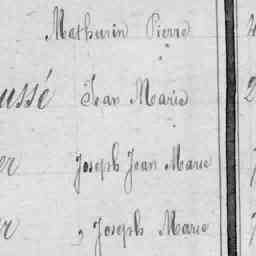 Mathurin Pierre
ussé Jean Marie
er Joseph Jean Marie
er " Joseph Marie